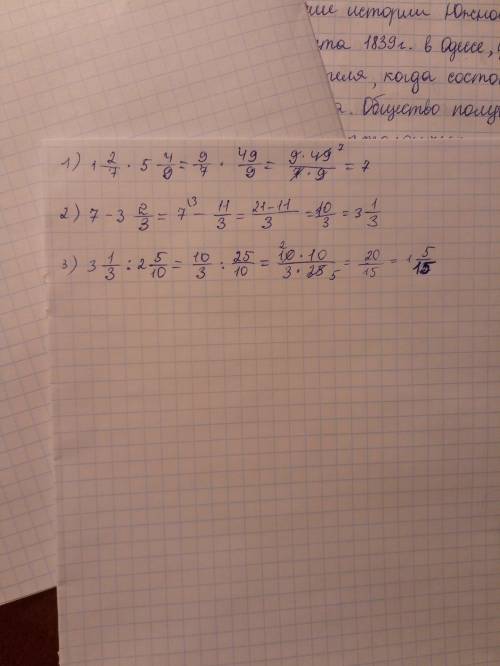 ии истории Южно
та 1839г. в Одесе,
еля, когда состо
а. Общество полу
1) 1 2/7 · 5 4/9 = 9/7 · 49/9 = 9·49 7/7·9 = 7
2) 7 - 3 2/3 = 7 \3 - 11/3 = 21-11/3 = 10/3 = 3 1/3
3) 3 1/3 : 2 5/10 = 10/3 : 25/10 = 2 10·10/3·25 5 = 20/15 = 1 5/15